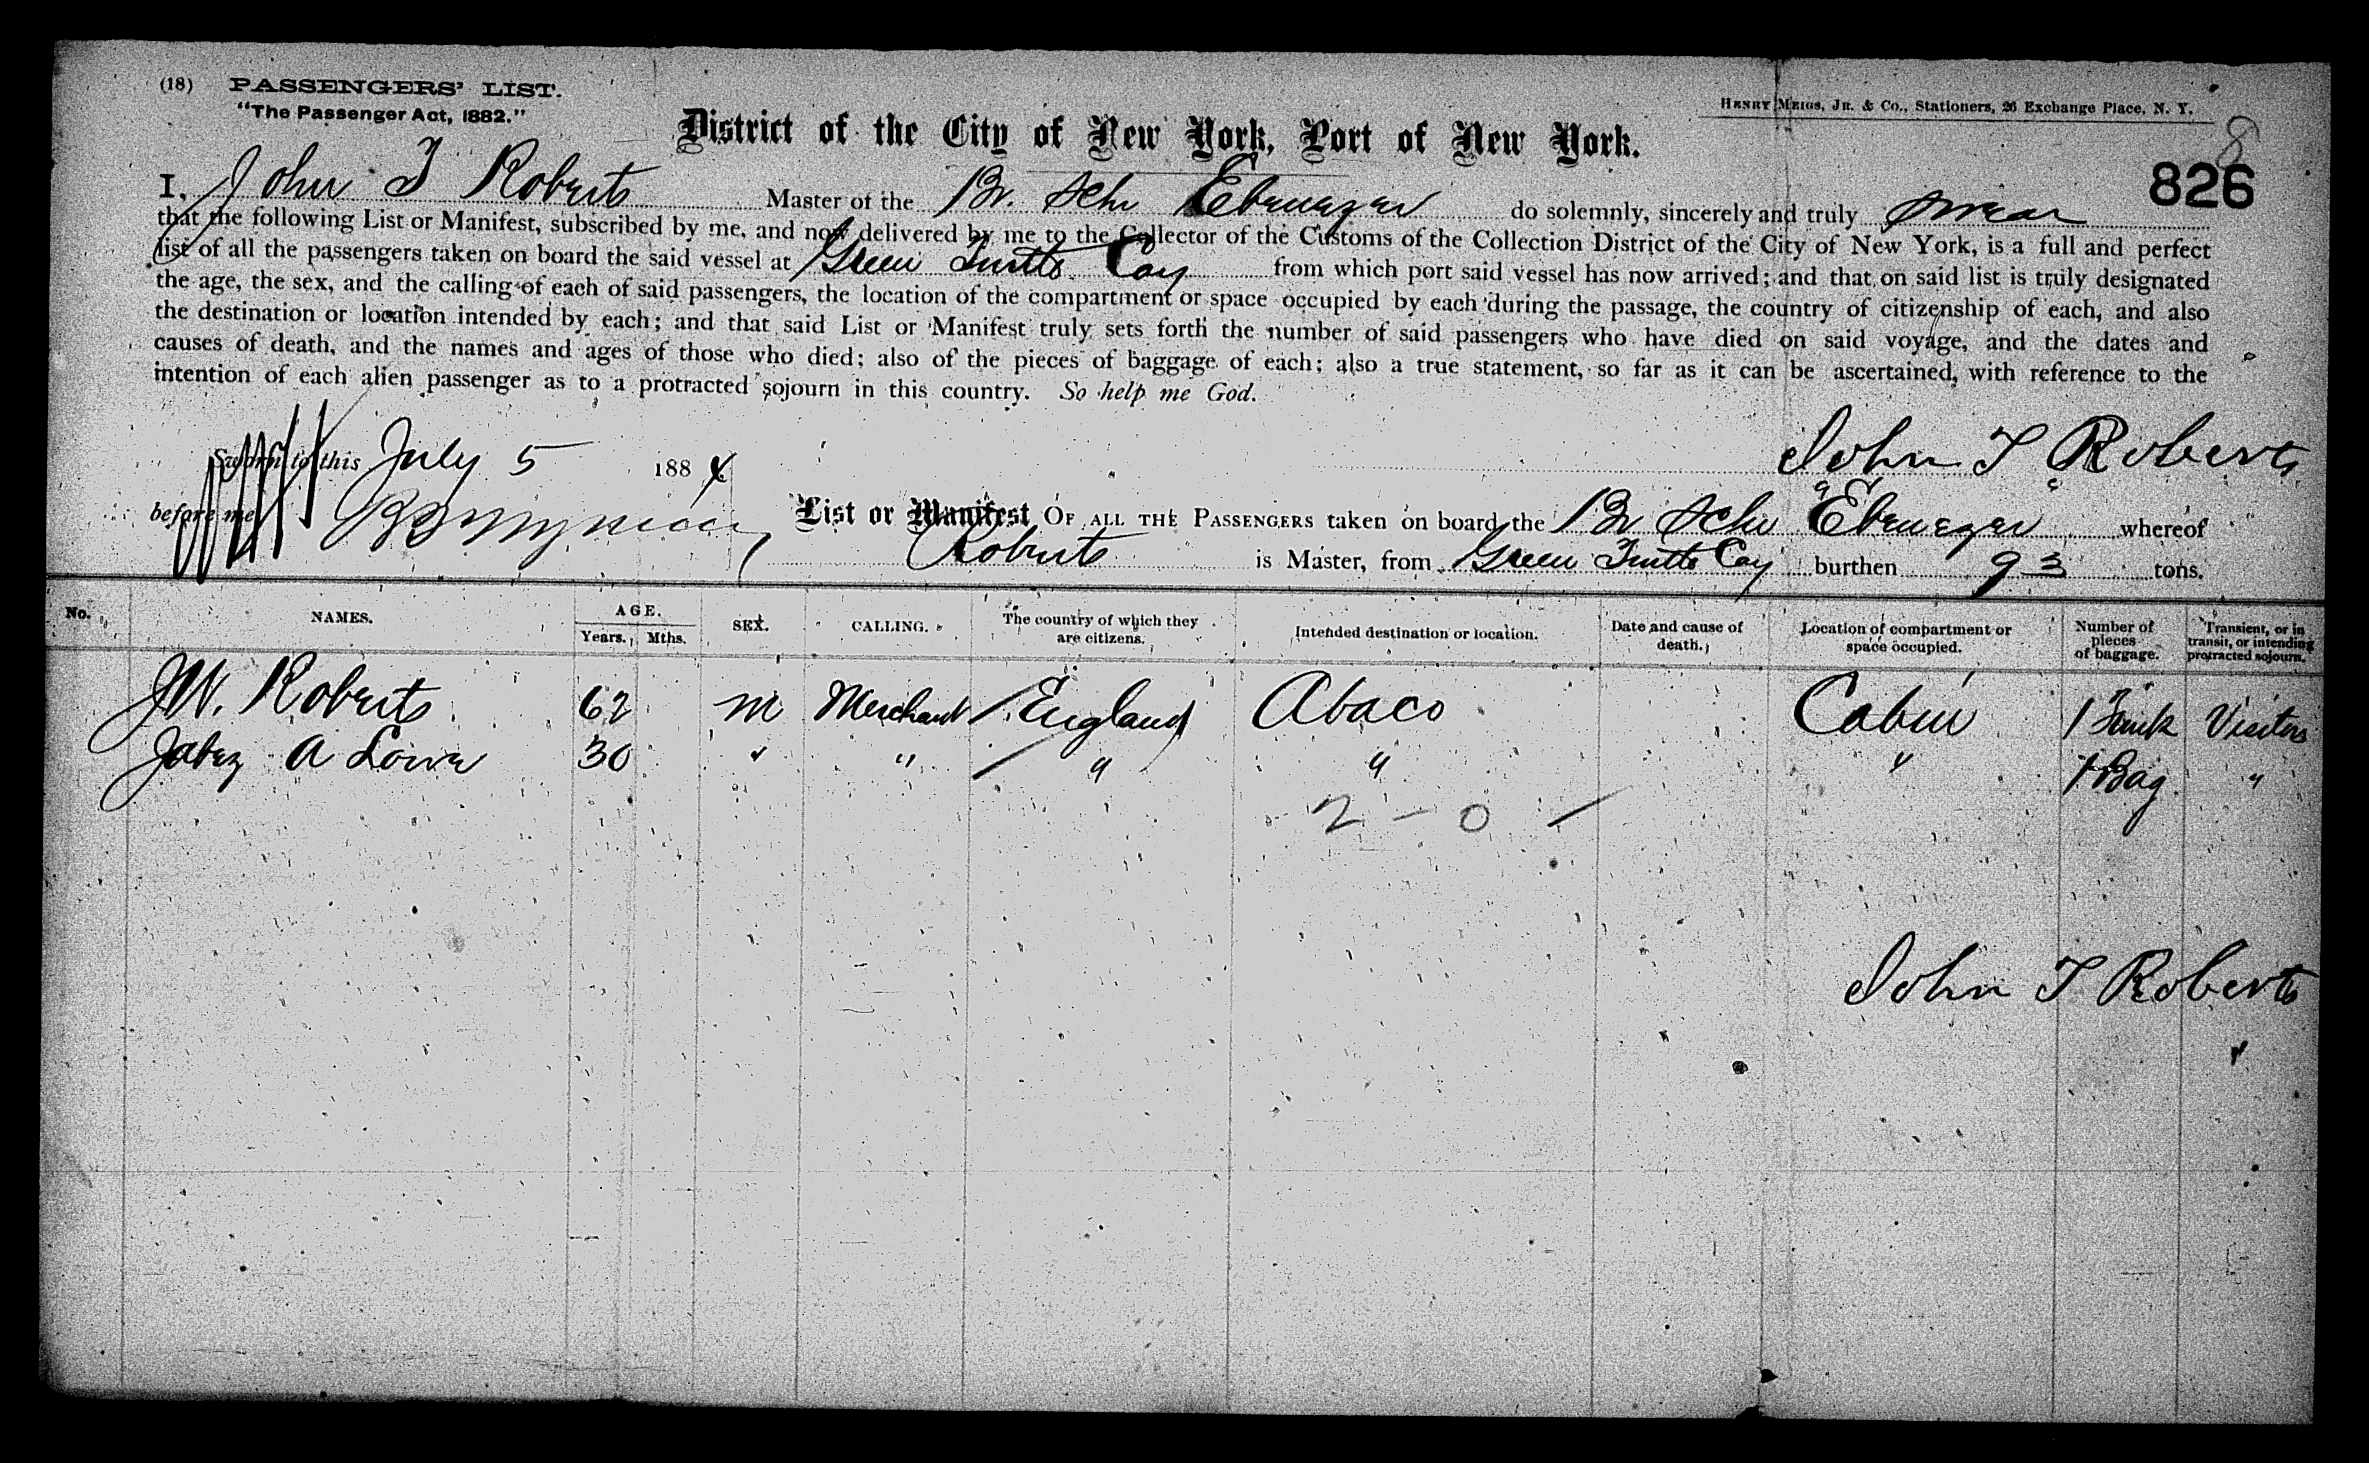 (18) PASSENGERS' LIST.
"The Passenger Act, 1882."
HENRY MEIGS, JR. & CO., Stationers, 26 Exchange Place, N. Y.
District of the City of New York, Port of New York.
8
826
I, John T Roberts Master of the Br. Schr Ebenezer do solemnly, sincerely and truly swear
that the following List or Manifest, subscribed by me, and now delivered by me to the Collector of the Customs of the Collection District of the City of New York, is a full and perfect
list of all the passengers taken on board the said vessel at Green Turtle Cay from which port said vessel has now arrived; and that on said list is truly designated
the age, the sex, and the calling of each of said passengers, the location of the compartment or space occupied by each during the passage, the country of citizenship of each, and also
the destination or location intended by each; and that said List or Manifest truly sets forth the number of said passengers who have died on said voyage, and the dates and
causes of death, and the names and ages of those who died; also of the pieces of baggage of each; also a true statement, so far as it can be ascertained, with reference to the
intention of each alien passenger as to a protracted sojourn in this country. So help me God.
Sworn to this July 5 1884 John T Roberts
before me
List or Manifest OF ALL THE PASSENGERS taken on board the Br Schr "Ebenezer" whereof
Roberts is Master, from Green Turtle Cay burthen 93 tons.
No. NAMES. AGE. Years. Mths. SEX. CALLING. The country of which they are citizens. Intended destination or location. Date and cause of death. Location of compartment or space occupied. Number of pieces of baggage. Transient, or in transit, or intending protracted sojourn.
JW. Roberts 62 M Merchant England Abaco Cabin 1 Trunk Visitors
Jabez A Lowe 30 " " " " " 1 Bag "
2 - 0 -
John T Roberts